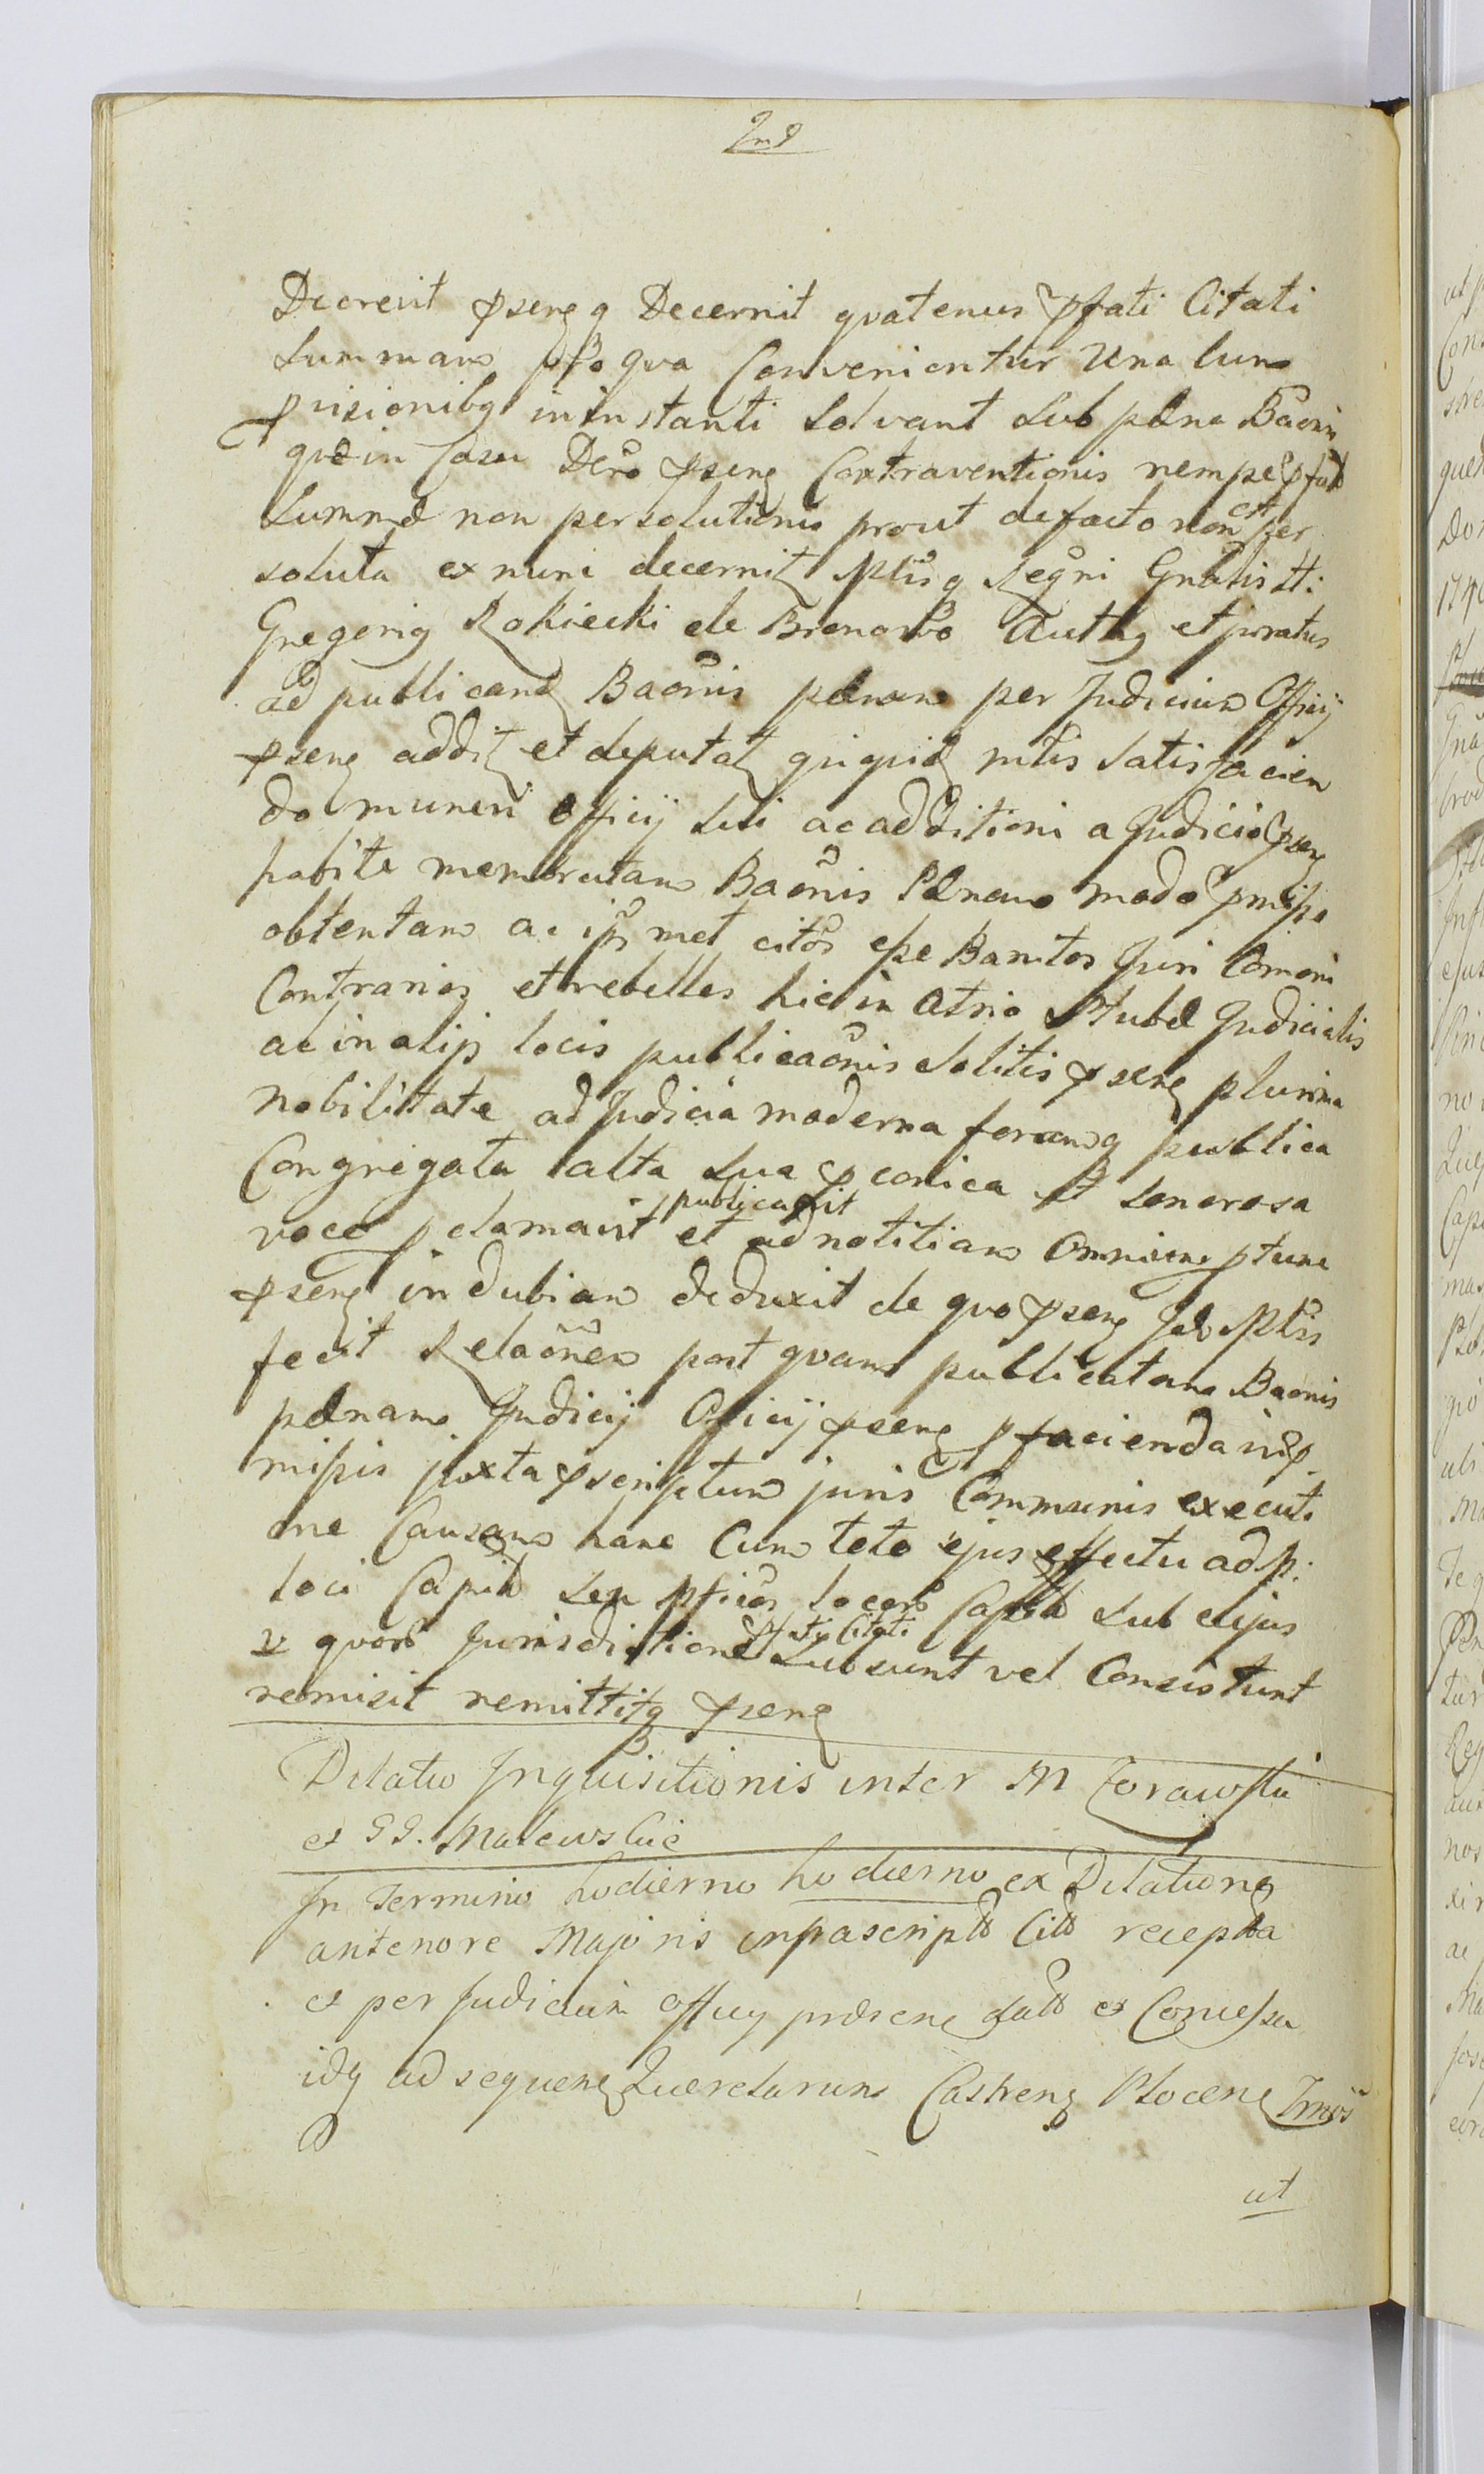 2nd
Decrevit psensq Decernit qvatenus pfati Citati
Summam pro qva Conveniontur Una Cum
pvisionibq in instanti Solvant Sub pæna Baonis
qvæ in Casu Decro psens Contraventionis nempe pfatæ
Summæ non persolutionis prout de facto non est per
soluta ex nunc decernit Mtlisq Regni Gnalis H:
Gregoriq Rokiecki de Bronowo Authq et juratus
ad publicand Baonis pænam per Judicium Officij
psens addit et deputat qui quid mtlis Satisfacien
do muneri Officij Sui ac additioni a Judicio psens
habitæ memoratam Baonis Pænam modo pmisso
obtentam ac ipsmet citos esse Banitos Juri Comoni
Contrarios et rebelles hic in Atrio Stubæ Judicialis
ac in alijs locis publicaonis Solitis psens plurima
Nobilitate ad Judicia moderna forumq publica
Congregata alta Sua pconica et Sonorosa
voce pclamavit publicavit et ad notitiam Omnium ptunc
psens indubiam deduxit de qvo psens Idm Mtlis
fecit Relaonem post qvam publicatam Baonis
pænam Judicij Officij psens p facienda in p
missis juxta pscriptum juris Communis executi
one Causam hanc Cum toto ejus effectu ad p:
loci Capit Seu Officia locor Capit Sub cujus
v qvor Jurisdictione pfati Citati Subsunt vel Consistunt
remisit remittitq psens
Dilatio Inquisitionis inter M Zorawski
et GG. Malewskie
In Termino hodierno hodierno ex Dilatione
anteriore Majoris infrascript Cit recepta
et per Judicium Officij præsens dat et Concessa
idq ad sequens Querelarum Castrens Plocens Imos
ut